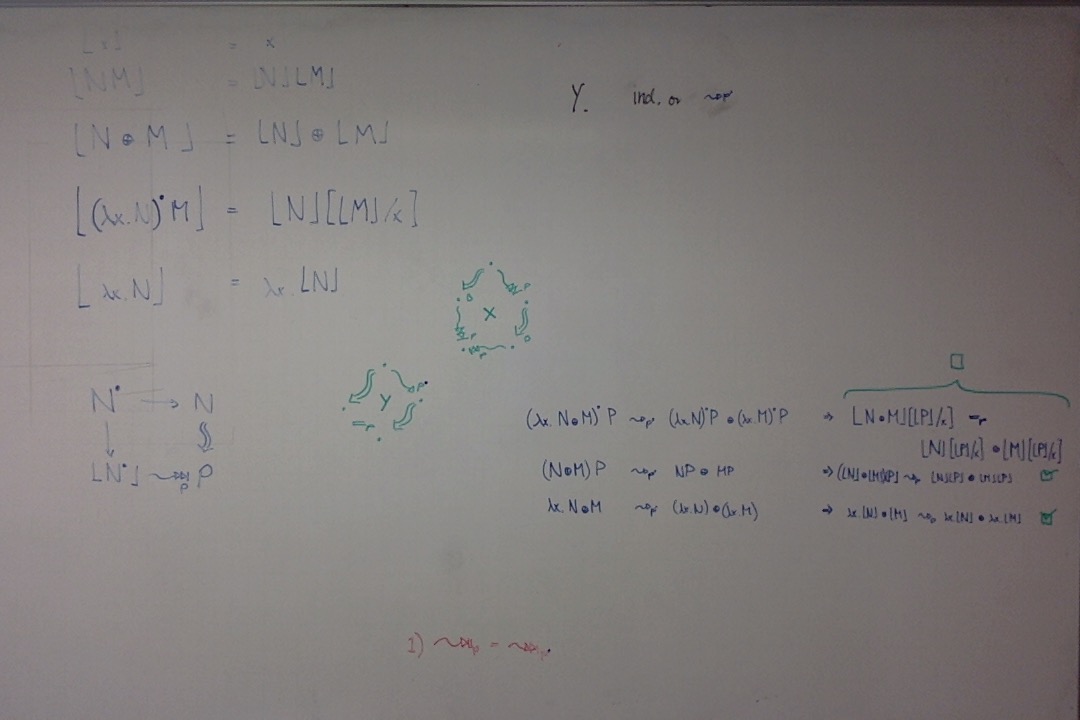 ⌊x⌋ = x
⌊NM⌋ = ⌊N⌋⌊M⌋
⌊N ⊕ M⌋ = ⌊N⌋ ⊕ ⌊M⌋
⌊(λx.N)•M⌋ = ⌊N⌋[⌊M⌋/x]
⌊λx.N⌋ = λx.⌊N⌋
Y. ind. on ⇝p
X
Y
=p
N• → N
⌊N•⌋ ↠p P
□
(λx.N⊕M)•P ⇝p (λx.N)•P ⊕ (λx.M)•P ⇒ ⌊N⊕M⌋[⌊P⌋/x] =p
⌊N⌋[⌊P⌋/x] ⊕ ⌊M⌋[⌊P⌋/x]
(N⊕M)P ⇝p NP ⊕ MP ⇒ (⌊N⌋⊕⌊M⌋)⌊P⌋ ⇝p ⌊N⌋⌊P⌋ ⊕ ⌊M⌋⌊P⌋ ☑
λx.N⊕M ⇝p (λx.N)⊕(λx.M) ⇒ λx.⌊N⌋⊕⌊M⌋ ⇝p λx.⌊N⌋ ⊕ λx.⌊M⌋ ☑
1) ↠p = ↠p•